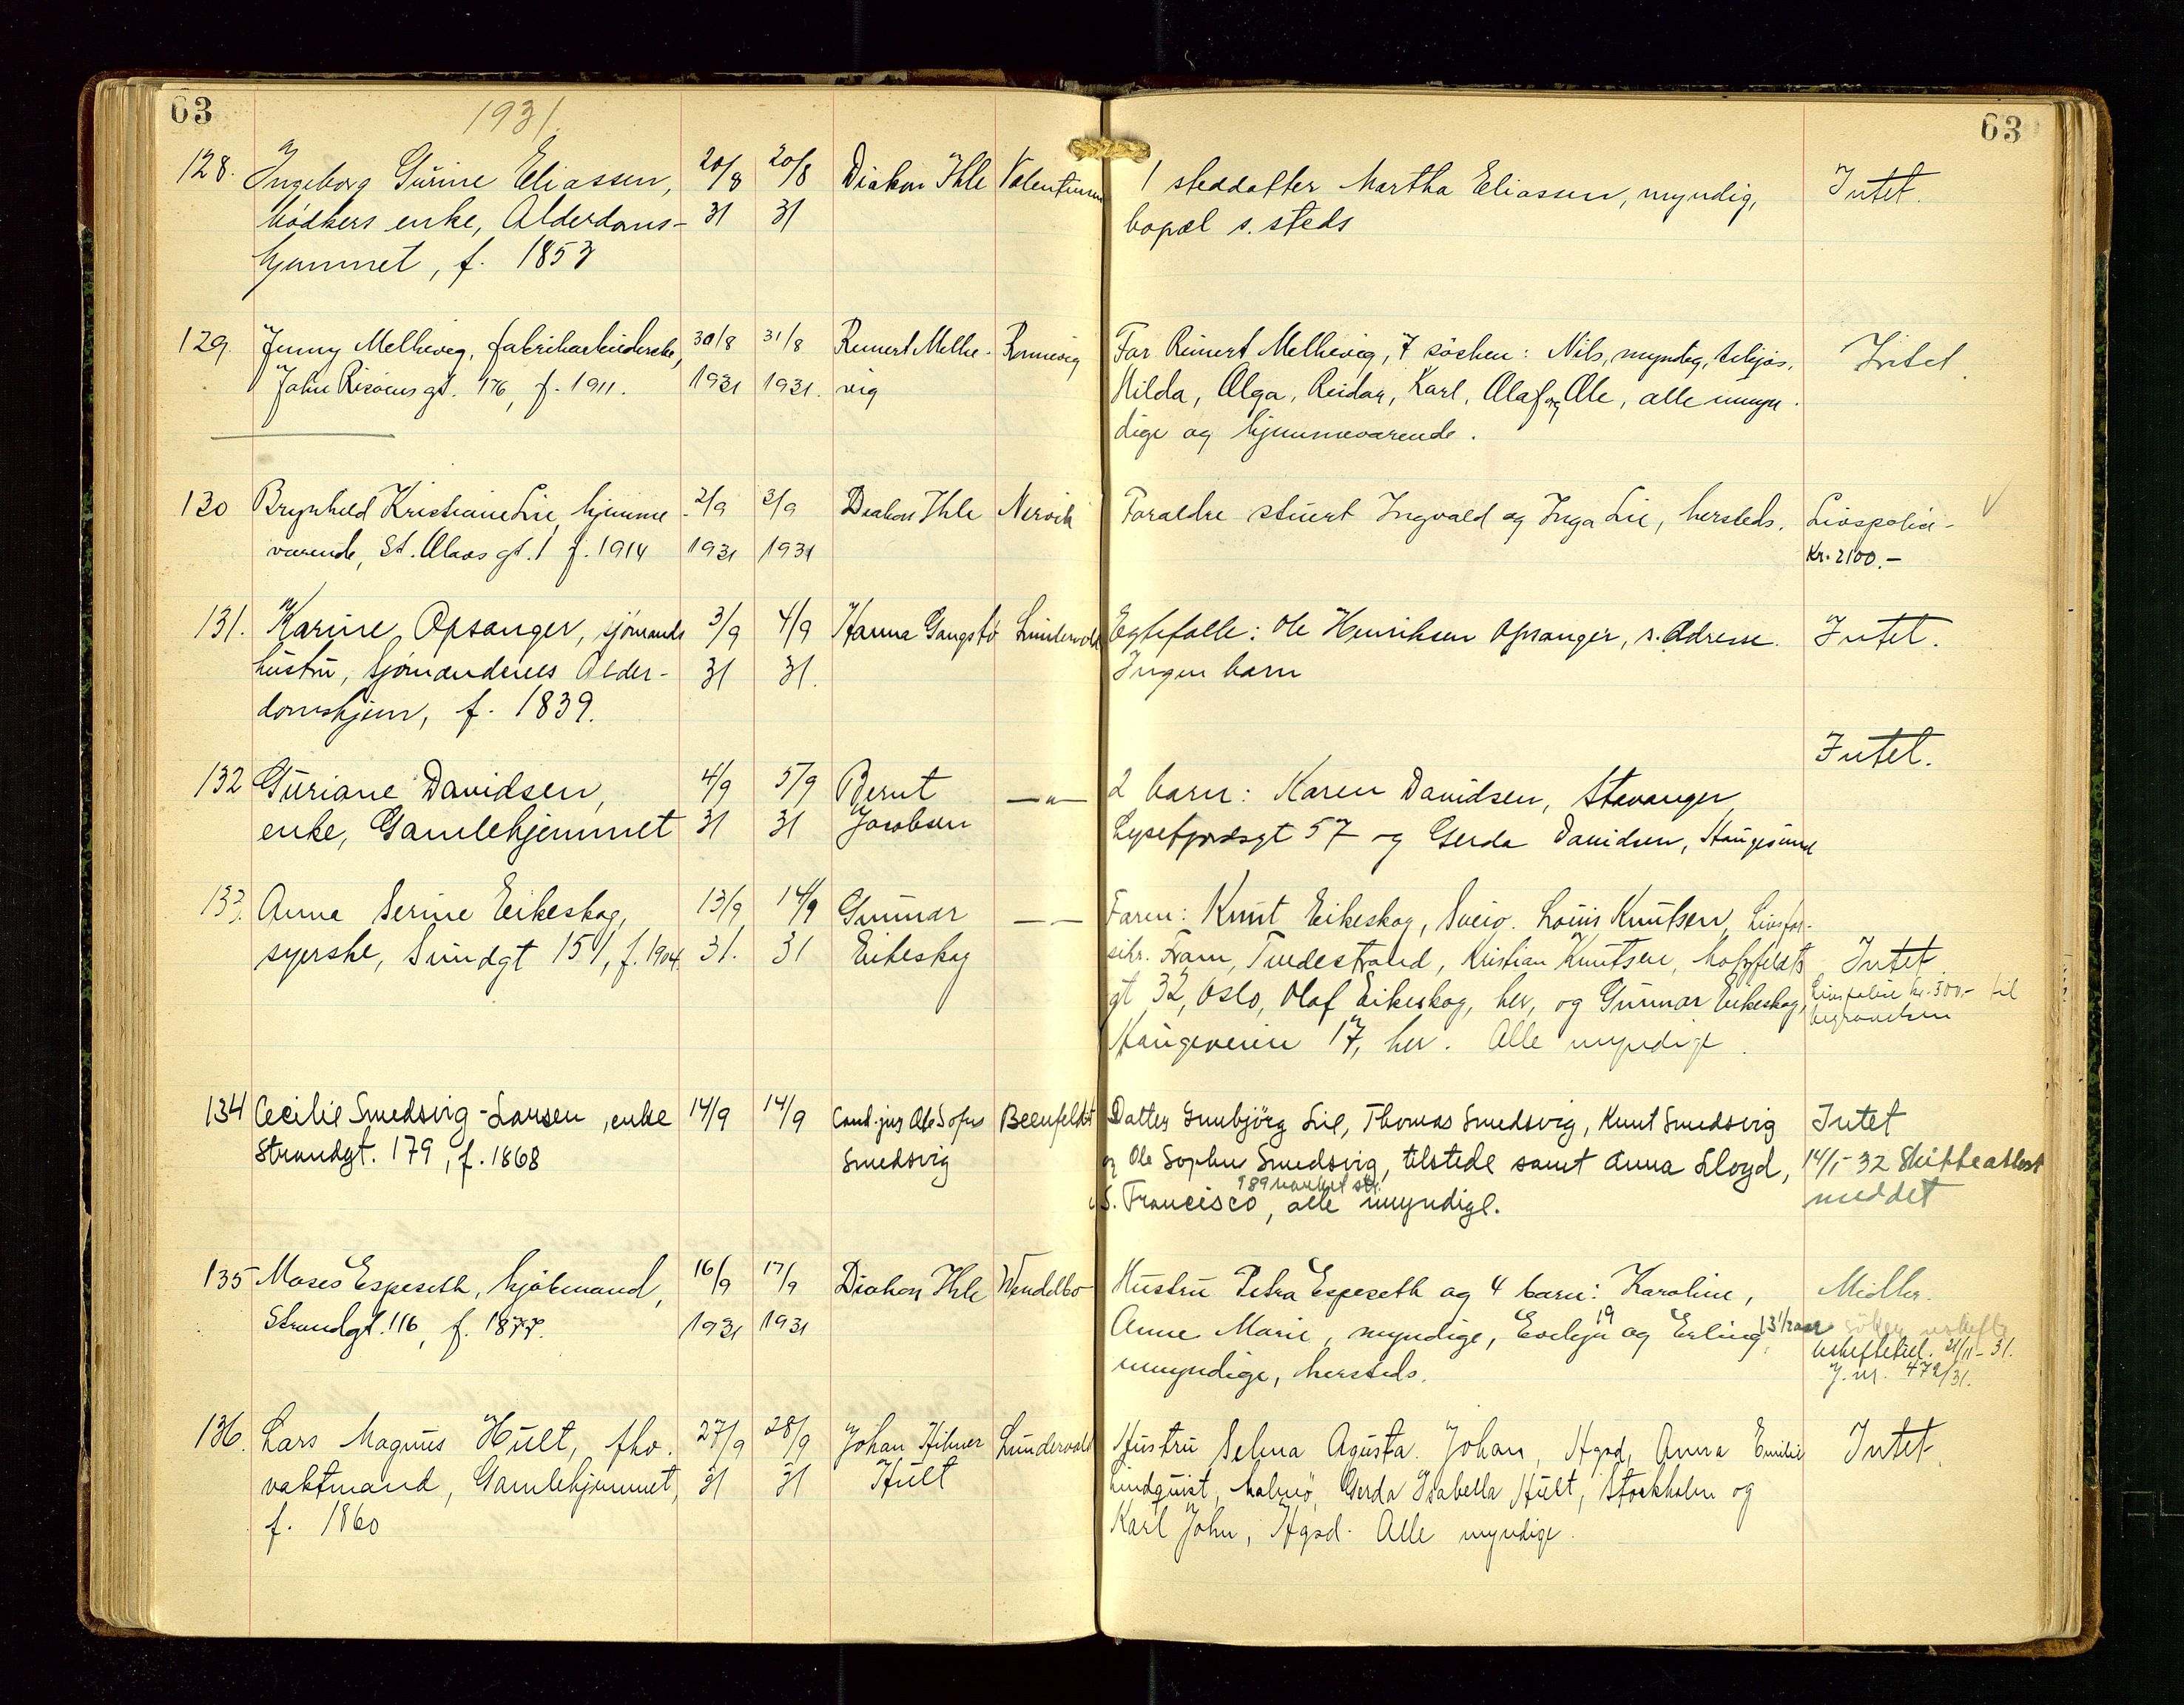 63
1931
63
128. Ingeborg Gurine Eliassen, 20/8 20/8 Diakon Ihle Valentinsen 1 steddatter Martha Eliassen, myndig, Intet.
bödkers enke, Alderdoms- 31 31 bopæl s. steds
hjemmet, f. 1853
129. Jenny Melhevig, fabrikarbeiderske, 30/8 31/8 Reinert Melhe- Rønnevig Far Reinert Melhevig, 7 søsken: Nils, myndig, tilsjøs, Intet.
John Risöens gt. 176, f. 1911. 1931 1931. vig Hilda, Olga, Reidar, Karl, Olaf og Ole, alle umyn-
dige og hjemmeværende.
130 Brynhild Kristiane Lie, hjemme- 2/9 3/9 Diakon Ihle Nervik Forældre stuert Ingvald og Inga Lie, hersteds. Livspolice-
værende, St. Olavs gt. 1 f. 1914 1931 1931 Kr. 2100.-
131. Karine Opsanger, sjömands 3/9 4/9 Hanna Gangstö Lundervold Egtefælle: Ole Henriksen Opsanger, s. Adresse. Intet.
hustru, Sjömændenes Alder- 31 31. Ingen barn
domshjem, f. 1839.
Intet.
132 Guriane Davidsen, 4/9 5/9 Bernt —"— 2 barn: Karen Davidsen, Stavanger,
enke, Gamlehjemmet 31 31 Jacobsen Lysefjordsgt 57 og Gerda Davidsen, Haugesund
133. Anna Serine Eikeskog, 13/9 14/9 Gunnar — — Faren: Knut Eikeskog, Sveio. Louis Knutsen, Livsfor-
syerske, Sundgt 151, f. 1904. 31. 31 Eikeskog sikr. Fram, Tvedestrand, Kristian Knutsen, Intet
gt 32, Oslo, Olaf Eikeskog, her, og Gunnar Eikeskog, Livspolice kr. 500,- til
Haugeveien 17, her. Alle myndige. begravelsen
134 Cecilie Smedsvig-Larsen, enke 14/9 14/9 Cand. jur Ole Sofus Beenfeldt Datter Gunbjörg Lie, Thomas Smedsvig, Knut Smedsvig Intet
Strandgt. 179, f. 1868 Smedsvig og Ole Sophus Smedsvig, tilstede samt Anna Lloyd, 14/1-32 Skifteattest
989 market str.
i S. Francisco, alle myndige. meddelt
135 Moses Espeseth, kjöbmand, 16/9 17/9 Diakon Ihle Wendelbo Hustru Petra Espeseth og 4 barn: Karoline, Midler.
Strandgt. 116, f. 1877. 1931 1931 Anne Marie, myndige, Evelyn 19 og Erling 13 1/2 aar söker uskifte
umyndige, hersteds. Uskiftebev. 21/11-31.
J. nr. 472/31.
136. Lars Magnus Hult, fhv. 27/9 28/9 Johan Hilmer Lundervold Hustru Selma Agusta. Johan, Hgsd, Anna Emilie Intet.
vaktmand, Gamlehjemmet, 31 31 Hult Lindquist, Malmö, Gerda Isabella Hult, Stockholm og
f. 1860 Karl John, Hgsd. Alle myndige.